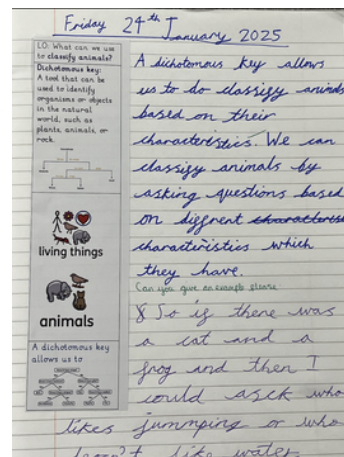 Friday 24th January 2025
LO: What can we use
to classify animals?
Dichotomous key:
A tool that can be
used to identify
organisms or objects
in the natural
world, such as
plants, animals, or
rock.
living things
animals
A dichotomous key
allows us to
A dichotomous key allows
us to do classify animals
based on their
characteristics. We can
classify animals by
asking questions based
on diffrent
characteristics which
they have.
Can you give an example please
So if there was
a cat and a
frog and then I
could asck who
likes jummping or who
like water